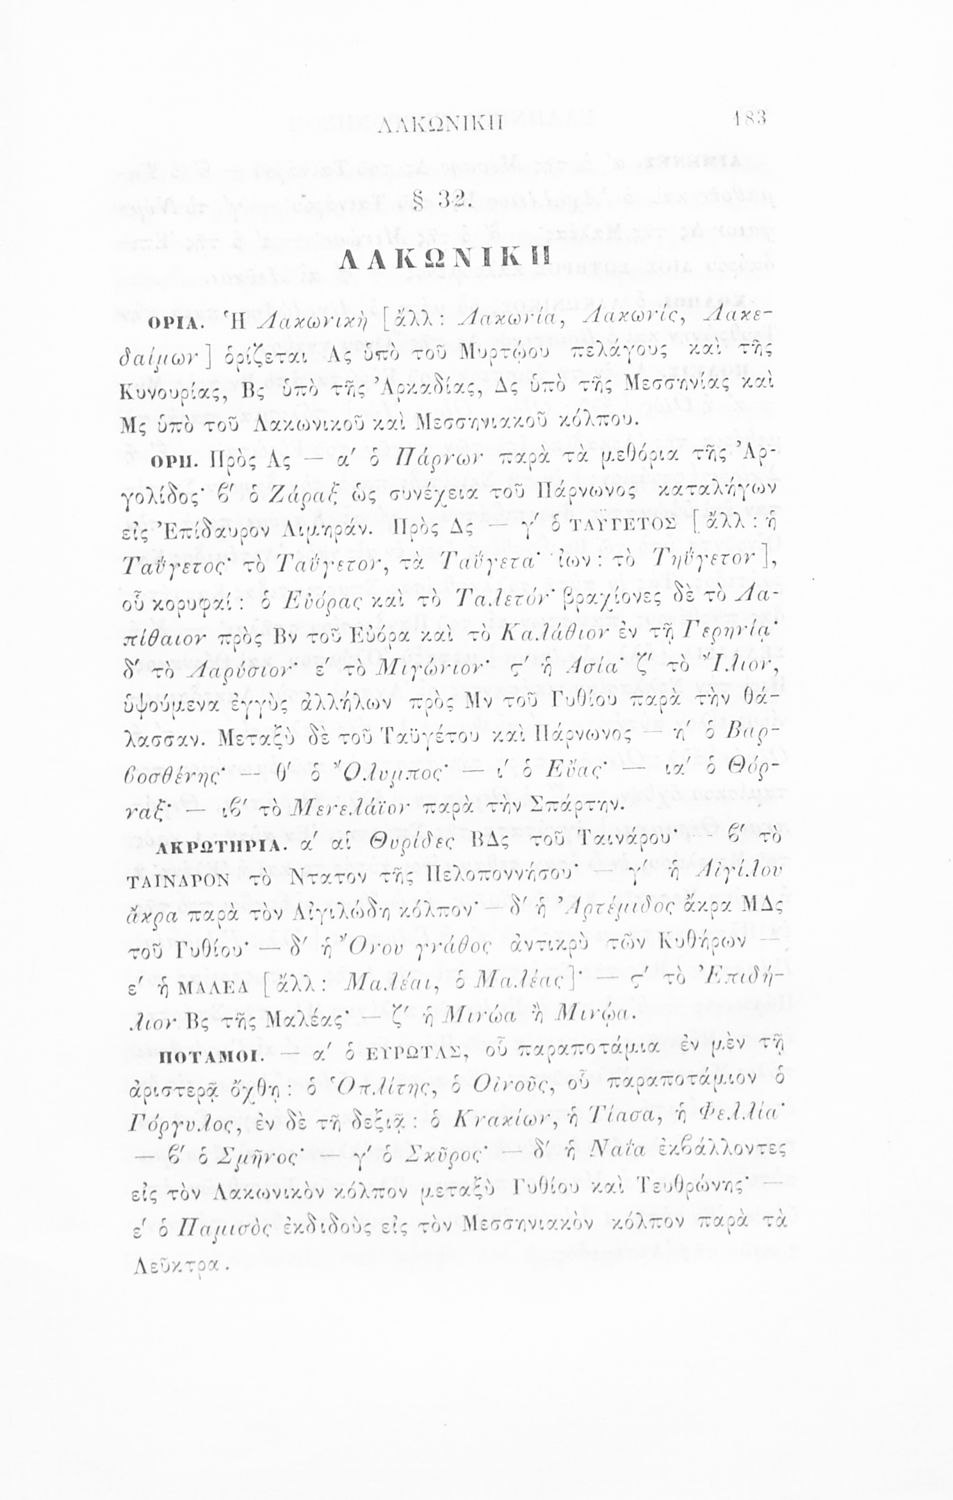 ΛΑΚΩΝΙΚΗ 183
§ 32.
ΛΑΚΩΝΙΚΗ
ΟΡΙΑ. Ἡ Λακωνικὴ [ἄλλ: Λακωνία, Λακωνίς, Λακε-
δαίμων] ὁρίζεται Ας ὑπὸ τοῦ Μυρτῴου πελάγους καὶ τῆς
Κυνουρίας, Βς ὑπὸ τῆς Ἀρκαδίας, Δς ὑπὸ τῆς Μεσσηνίας καὶ
Μς ὑπὸ τοῦ Λακωνικοῦ καὶ Μεσσηνιακοῦ κόλπου.
ΟΡΗ. Πρὸς Ας — α′ ὁ Πάρνων παρὰ τὰ μεθόρια τῆς Ἀρ-
γολίδος· β′ ὁ Ζάραξ ὡς συνέχεια τοῦ Πάρνωνος καταλήγων
εἰς Ἐπίδαυρον Λιμηράν. Πρὸς Δς — γ′ ὁ ΤΑΥΓΕΤΟΣ [ἄλλ: ἡ
Ταΰγετος· τὸ Ταΰγετον, τὰ Ταΰγετα· ἰων: τὸ Τηΰγετον],
οὗ κορυφαί: ὁ Εὐόρας καὶ τὸ Ταλετόν· βραχίονες δὲ τὸ Λα-
πίθαιον πρὸς Βν τοῦ Εὐόρα καὶ τὸ Καλάθιον ἐν τῇ Γερηνίᾳ·
δ′ τὸ Λαρύσιον· ε′ τὸ Μιγώνιον· ς′ ἡ Ἀσία· ζ′ τὸ Ἴλιον,
ὑψούμενα ἐγγὺς ἀλλήλων πρὸς Μν τοῦ Γυθίου παρὰ τὴν θά-
λασσαν. Μεταξὺ δὲ τοῦ Ταϋγέτου καὶ Πάρνωνος — η′ ὁ Βαρ-
βοσθένης· — θ′ ὁ Ὄλυμπος· — ι′ ὁ Εὔας· — ια′ ὁ Θόρ-
ναξ· — ιβ′ τὸ Μενελάϊον παρὰ τὴν Σπάρτην.
ΑΚΡΩΤΗΡΙΑ. α′ αἱ Θυρίδες ΒΔς τοῦ Ταινάρου· — β′ τὸ
ΤΑΙΝΑΡΟΝ τὸ Ντατον τῆς Πελοποννήσου· — γ′ ἡ Αἰγίλου
ἄκρα παρὰ τὸν Αἰγιλώδη κόλπον· — δ′ ἡ Ἀρτέμιδος ἄκρα ΜΔς
τοῦ Γυθίου· — δ′ ἡ Ὄνου γνάθος ἀντικρὺ τῶν Κυθήρων —
ε′ ἡ ΜΑΛΕΑ [ἄλλ: Μαλέαι, ὁ Μαλέας]· — ς′ τὸ Ἐπιδή-
λιον Βς τῆς Μαλέας· — ζ′ ἡ Μινώα ἢ Μινῴα.
ΠΟΤΑΜΟΙ. — α′ ὁ ΕΥΡΩΤΑΣ, οὗ παραποτάμια ἐν μὲν τῇ
ἀριστερᾷ ὄχθῃ: ὁ Ὁπλίτης, ὁ Οἰνοῦς, οὗ παραποτάμιον ὁ
Γόργυλος, ἐν δὲ τῇ δεξιᾷ: ὁ Κνακίων, ἡ Τίασα, ἡ Φελλία·
— β′ ὁ Σμῆνος· — γ′ ὁ Σκῦρος· — δ′ ἡ Ναΐα ἐκβάλλοντες
εἰς τὸν Λακωνικὸν κόλπον μεταξὺ Γυθίου καὶ Τευθρώνης· —
ε′ ὁ Παμισὸς ἐκδιδοὺς εἰς τὸν Μεσσηνιακὸν κόλπον παρὰ τὰ
Λεῦκτρα.